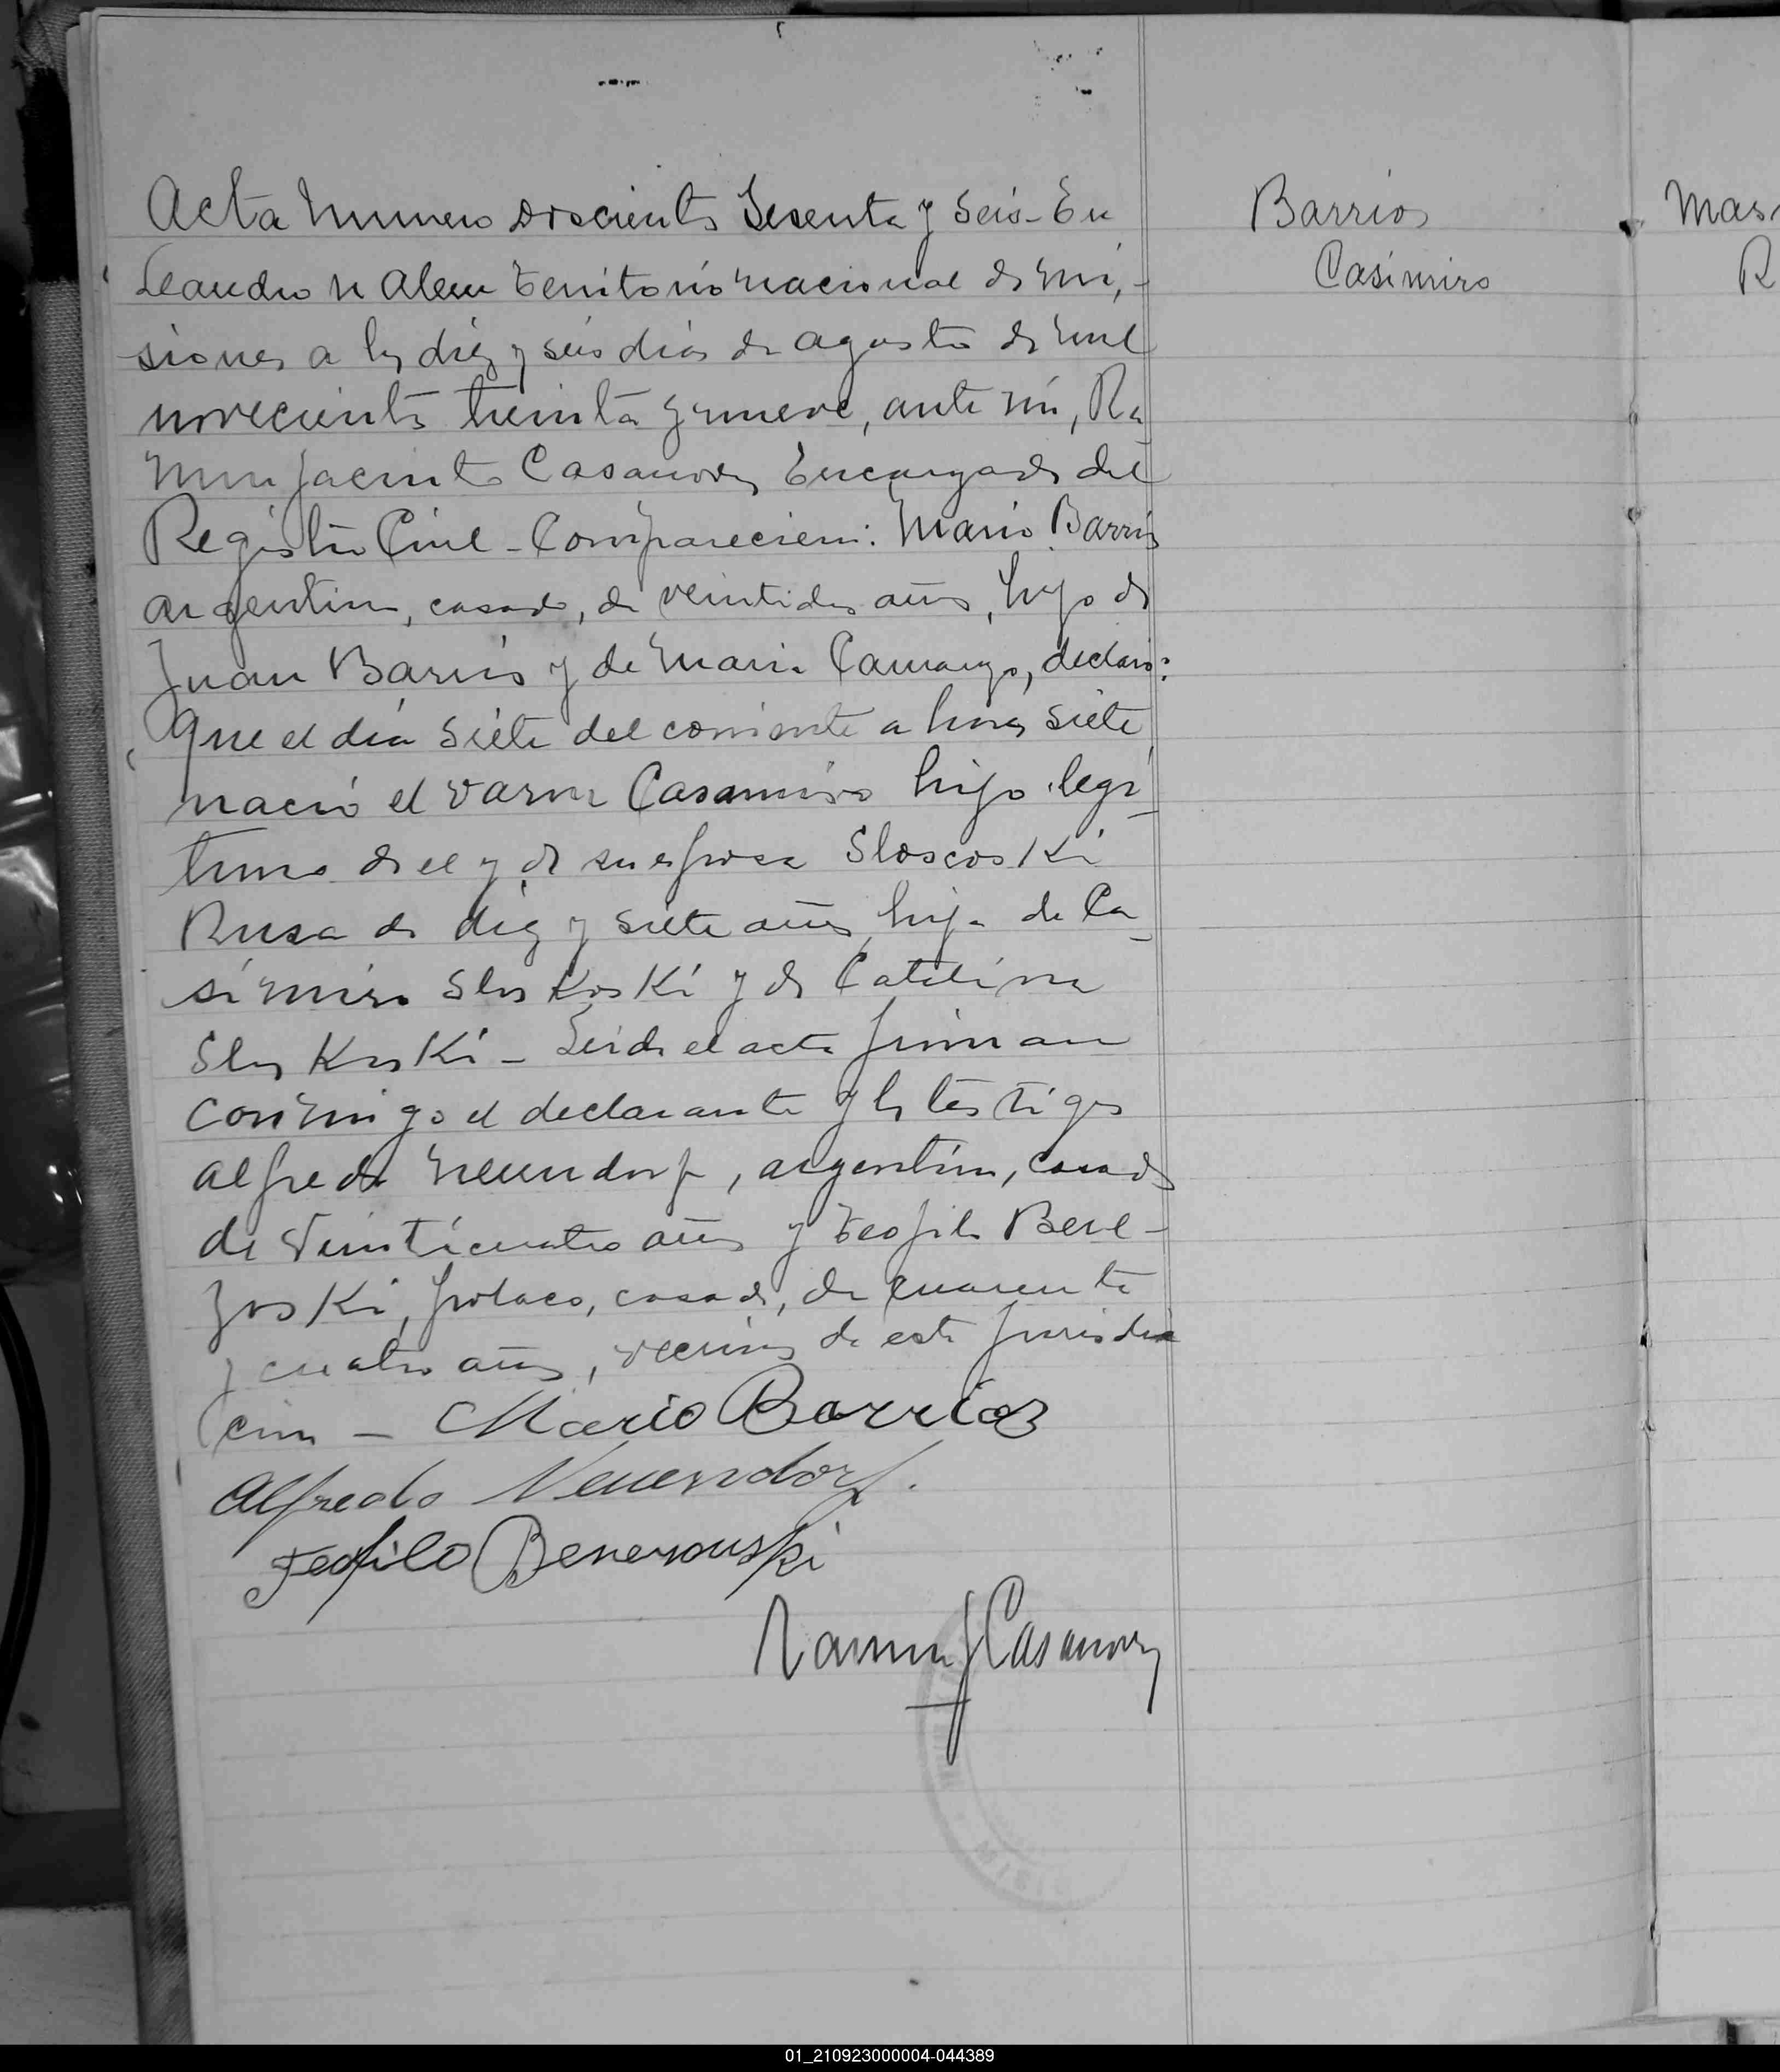 Acta Numero Doscientos Sesenta y Seis - En
Leandro N Alem Territorio Nacional de Mi,-
siones a los diez y seis dias de agosto de mil
novecientos treinta y nueve, ante mi, Ra
mon Jacinto Casanova Encargado del
Registro Civil - Comparecieron: Mario Barrios
argentino, casado, de veintidos años, hijo de
Juan Barrios y de Maria Camargo, declaro:
Que el dia siete del corriente a horas siete
nació el varon Casamiro hijo legi
timo de el y de su esposa Sloscoski
Rusa de diez y siete años, hija de Ca
simiro Sloskoski y de Catalina
Sloskoski - Leida el acta firman
conmigo el declarante y los testigos
Alfredo Neuendorf, argentino, casado
de veinticuatro años y Teofilo Bere-
zoski, polaco, casado, de cuarenta
y cuatro años, vecinos de esta jurisdic
cion - Mario Barrios
Alfredo Neuendorf.
Teofilo
Ramon J Casanova
Barrios
Casimiro
Mas
R
01_210923000004-044389